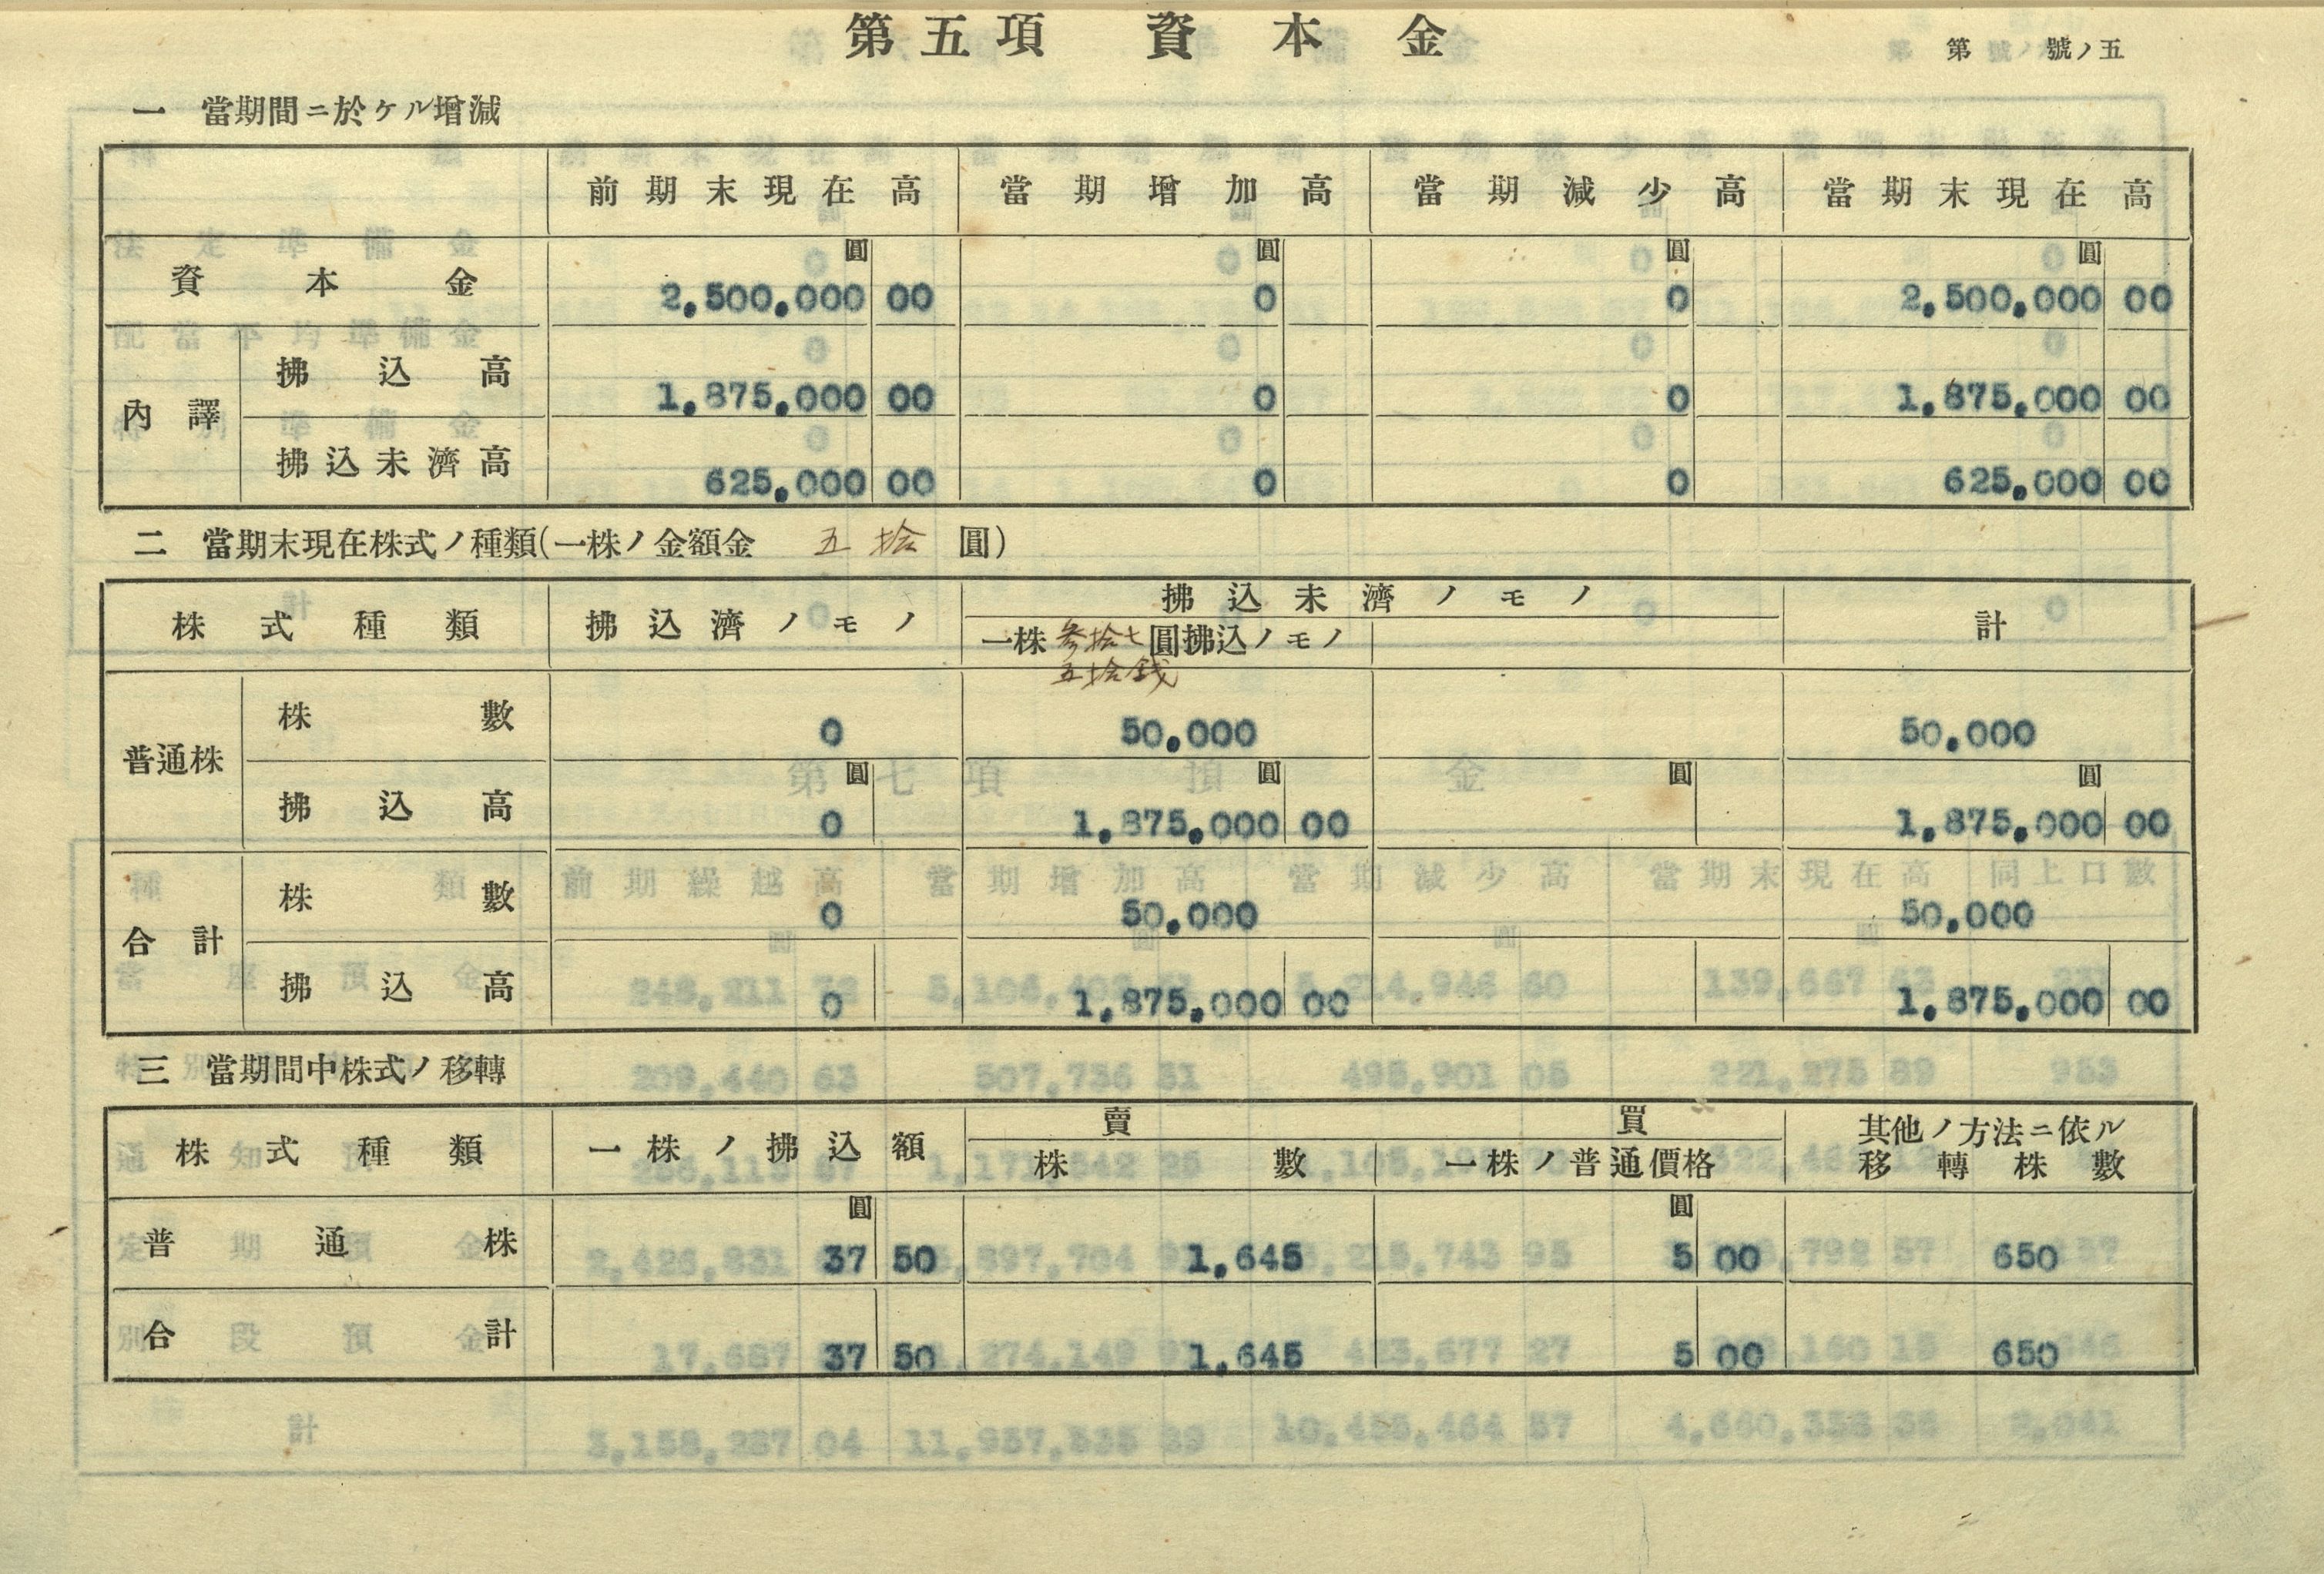 第五項　資本金
第　號ノ五
一　當期間ニ於ケル增減
前期末現在高　當期增加高　當期減少高　當期末現在高
資本金　圓 2,500,000 00　圓 0　圓 0　圓 2,500,000 00
內譯
拂込高　1,875,000 00　0　0　1,875,000 00
拂込未濟高　625,000 00　0　0　625,000 00
二　當期末現在株式ノ種類(一株ノ金額金　五拾　圓)
株式種類　拂込濟ノモノ　拂込未濟ノモノ　計
一株參拾七圓拂込ノモノ
五拾錢
普通株
株數　0　50,000　50,000
拂込高　圓 0　圓 1,875,000 00　圓　圓 1,875,000 00
合計
株數　0　50,000　50,000
拂込高　0　1,875,000 00　1,875,000 00
三　當期間中株式ノ移轉
株式種類　一株ノ拂込額　賣買　其他ノ方法ニ依ル
株數　一株ノ普通價格　移轉株數
普通株　圓 37 50　1,645　圓 5 00　650
合計　37 50　1,645　5 00　650